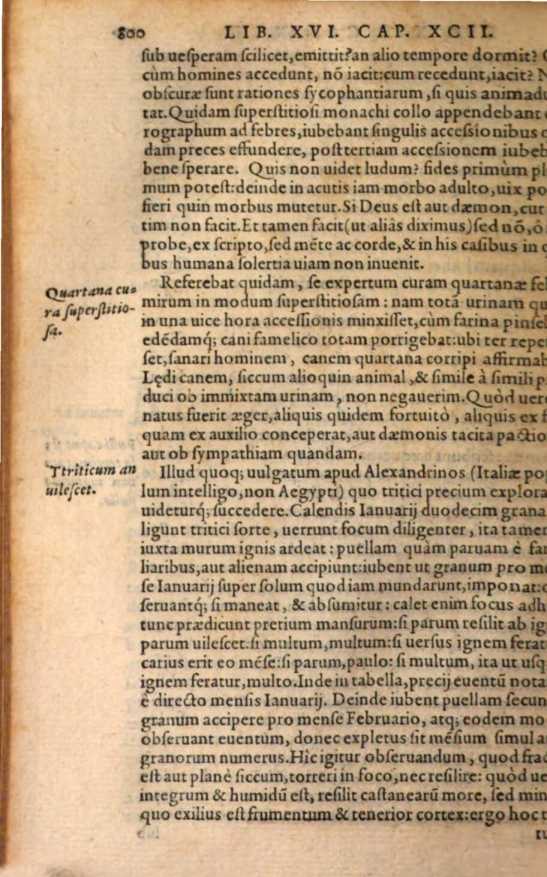 800 LIB. XVI. CAP. XCII.
sub uesperam scilicet, emittit? an alio tempore dormit?
cùm homines accedunt, nō iacit: cum recedunt, iacit?
obscuræ sunt rationes sycophantiarum, si quis animadu
tat. Quidam superstitiosi monachi collo appendebant
rographum ad febres, iubebant singulis accessionibus
dam preces effundere, post tertiam accessionem iubeb
bene sperare. Quis non uidet ludum? fides primùm pl
mum potest: deinde in acutis iam morbo adulto, uix po
fieri quin morbus mutetur. Si Deus est aut dæmon, cur
tim non facit. Et tamen facit (ut aliàs diximus) sed nō, ô
probe, ex scripto, sed mēte ac corde, & in his casibus in
bus humana solertia uiam non inuenit.
Quartana cu=
ra superstitio-
sa.
Referebat quidam, se expertum curam quartanæ feb
mirum in modum superstitiosam: nam totā urinam qu
in una uice hora accessionis minxisset, cùm farina pinse
edēdamq; cani famelico totam porrigebat: ubi ter repe
set, sanari hominem, canem quartana corripi affirmab
Lędi canem, siccum alioquin animal, & simile à simili p
duci ob immixtam urinam, non negauerim. Quòd uerò
natus fuerit æger, aliquis quidem fortuitò, aliquis ex f
quam ex auxilio conceperat, aut dæmonis tacita pactio
aut ob sympathiam quandam.
Ttriticum an
uilescet.
Illud quoq; uulgatum apud Alexandrinos (Italiæ pop
lum intelligo, non Aegypti) quo tritici precium explora
uideturq; succedere. Calendis Ianuarij duodecim grana
ligunt tritici sorte, uerrunt focum diligenter, ita tamen
iuxta murum ignis ardeat: puellam quàm paruam è fam
liaribus, aut alienam accipiunt: iubent ut granum pro me
se Ianuarij super solum quod iam mundarunt, imponat:
seruantq; si maneat, & absumitur: calet enim focus adh
tunc prædicunt pretium mansurum: si parum resilit ab ig
parum uilescet: si multum, multum: si uersus ignem ferat
carius erit eo mēse: si parum, paulo: si multum, ita ut usq
ignem feratur, multo. Inde in tabella, precij euentū nota
è directo mensis Ianuarij. Deinde iubent puellam secun
granum accipere pro mense Februario, atq; eodem mo
obseruant euentum, donec expletus sit mēsium simul a
granorum numerus. Hìc igitur obseruandum, quod frac
est aut planè siccum, torreri in foco, nec resilire: quòd ue
integrum & humidū est, resilit castanearū more, sed min
quo exilius est frumentum & tenerior cortex: ergo hoc t
tu